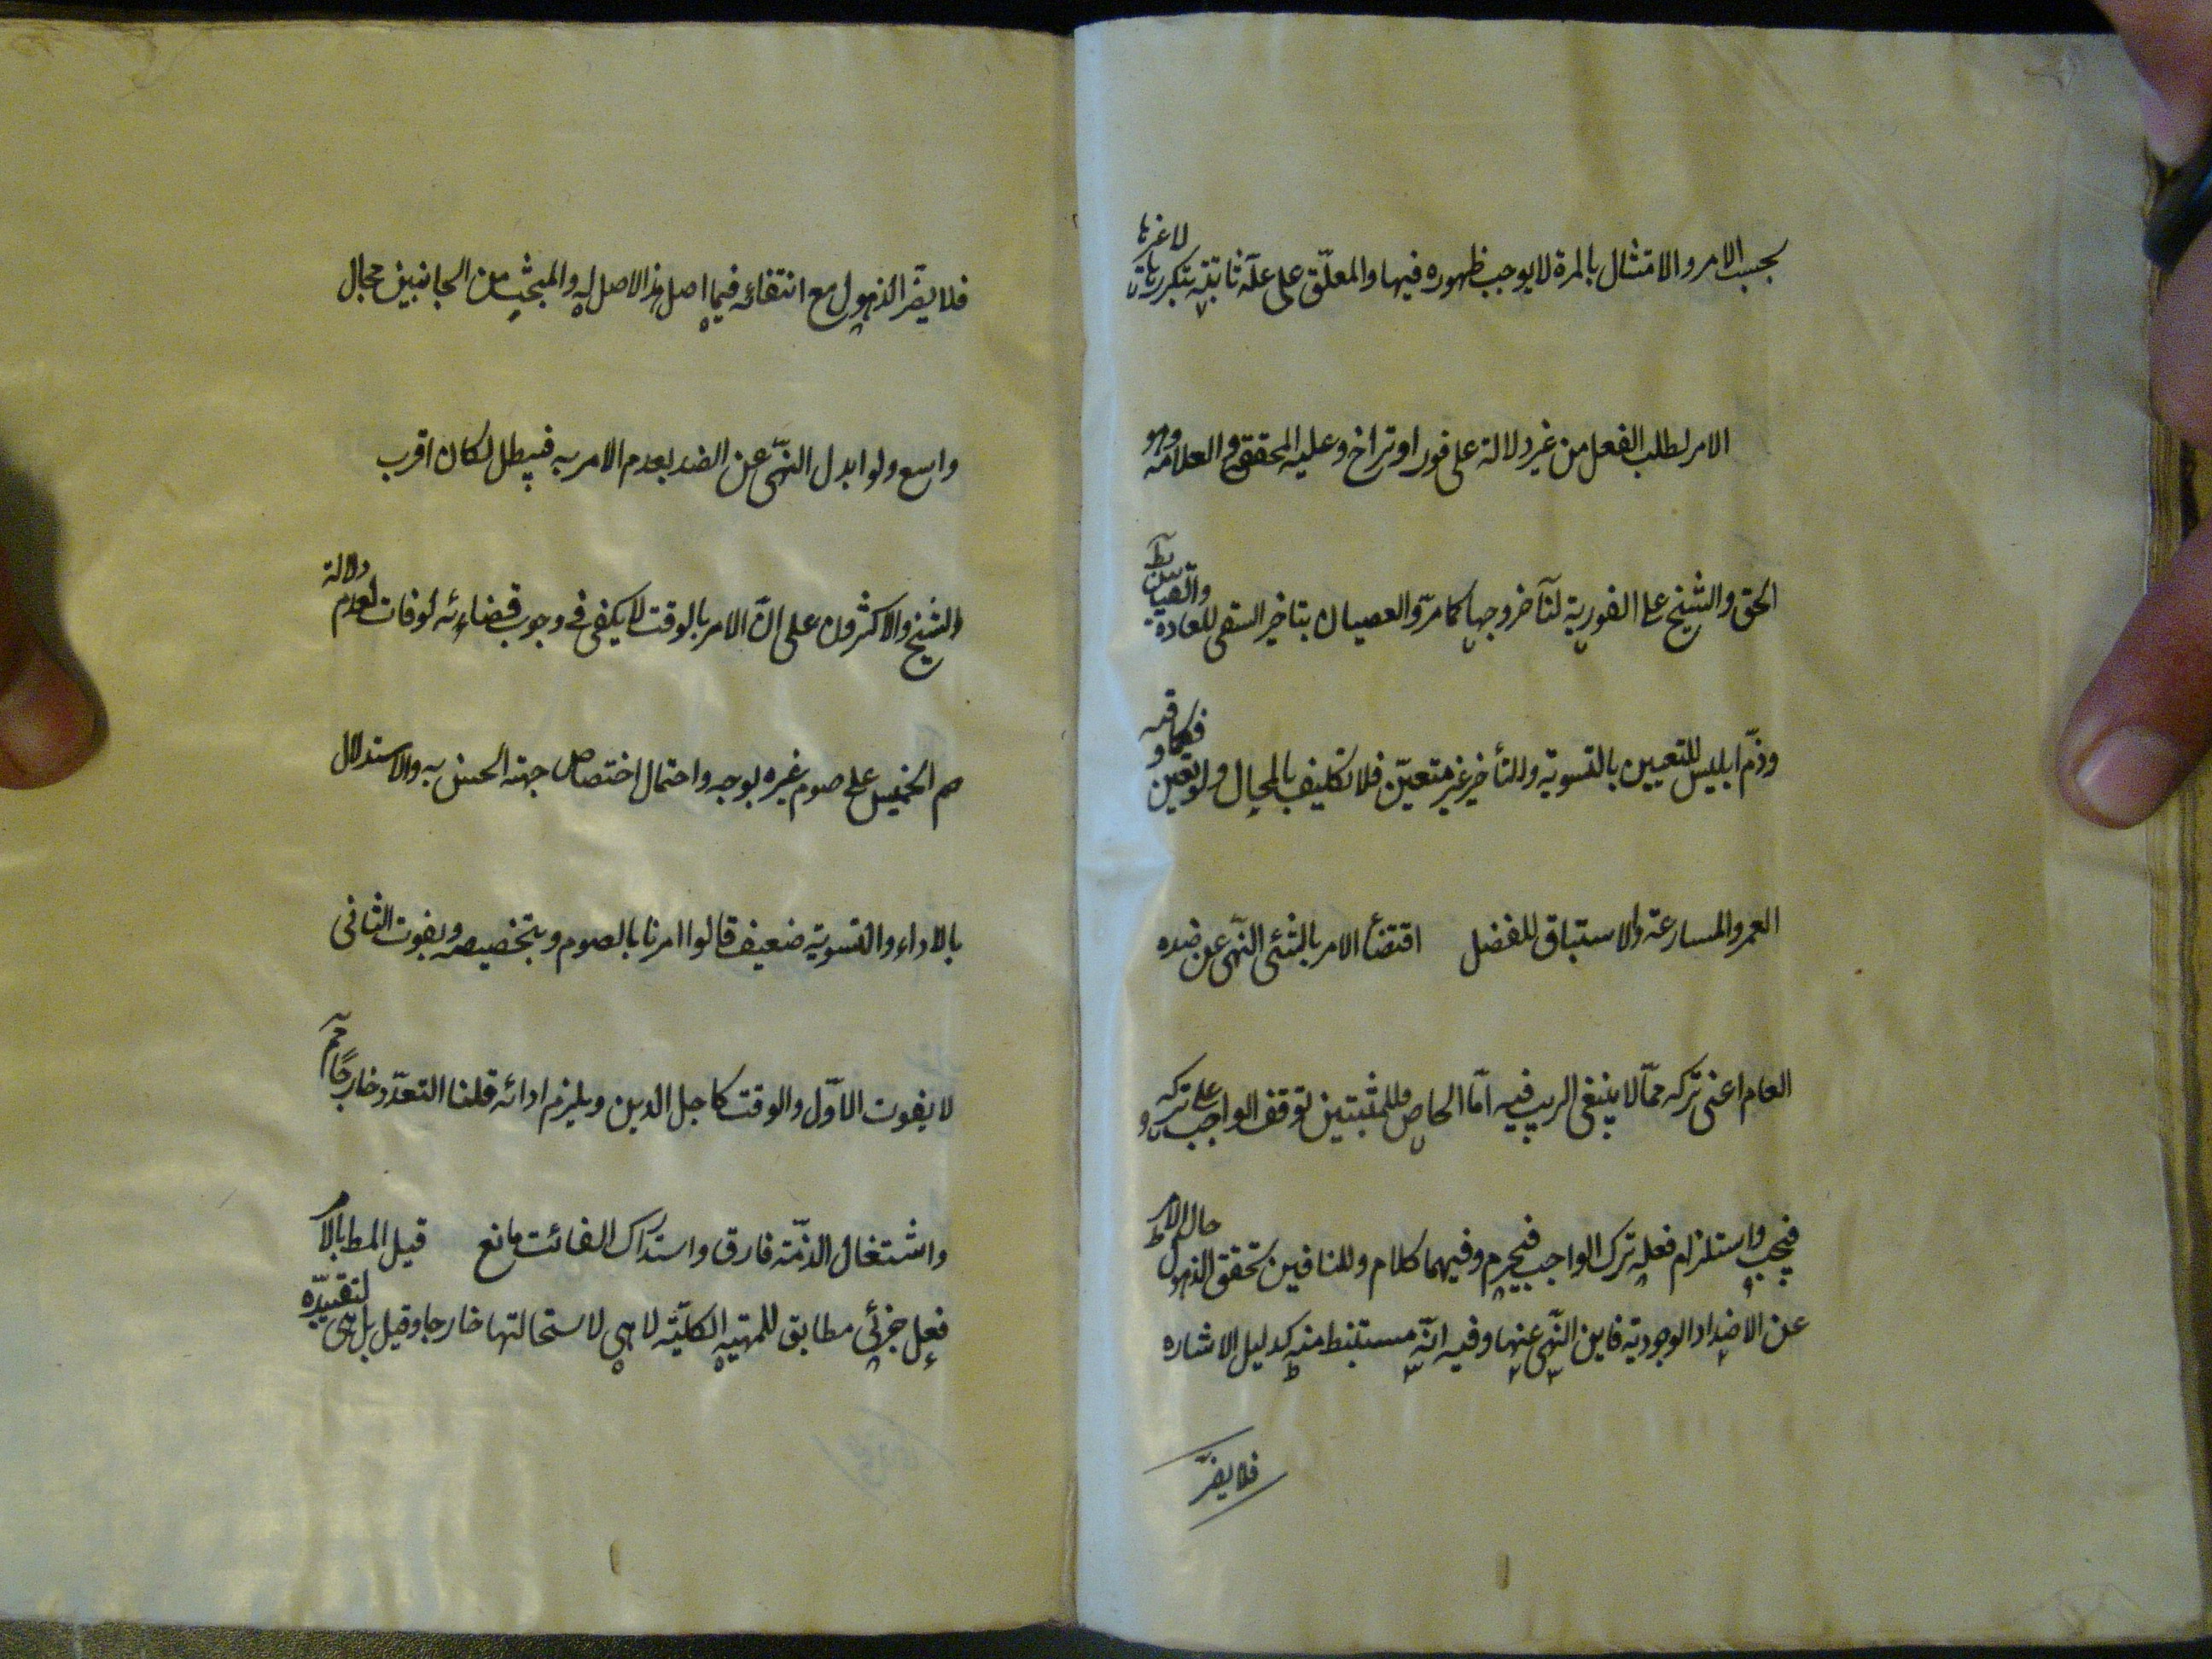 بحسب الامر والامتثال بالمرة لا يوجب ظهوره فيها والمعلّق على علّة ثابتة يتكرر بتكررها لا غيرها
الامر لطلب الفعل من غير دلالة على فور او تراخ وعليه المحقق والعلامة وهو
الحق والشيخ على الفورية لنا خروجها كما مرّ والعصيان بتاخير السقى للعادة
وذمّ ابليس للتعيين بالتسوية والتأخير غير متعيّن فلا تكليف بالمحال ولو تعين
العمر والمسارعة والاستباق للفضل اقتضأ الامر بالشئى النّهى عن ضده
العام اعنى تركه ممّا لا ينبغى الريب فيه امّا الخاص فللمثبتين توقف الواجب على تركه
فيجب واستلزام فعله ترك الواجب فيحرم وفيهما كلام وللنافين تحقق الذهول حال الامر
عن الاضداد الوجودية فاين النّهى عنها وفيه انّه مستنبط منه كدليل الاشاره
فلا يضرّ
فلا يضرّ الذهول مع انتفائه فيما اصل هذا الاصل له والمبحث من الجانبين مجال
واسع ولو ابدل النّهى عن الضد بعدم الامر به فيبطل لكان اقرب
الشيخ والاكثرون على انّ الامر بالوقت لا يكفى فى وجوب قضائه لو فات لعدم دلالة
صم الخميس على صوم غيره بوجه واحتمال اختصاص جهته الحسن به والاستدلال
بالاداء والتسوية ضعيف قالوا امرنا بالصوم وبتخصيصه وبفوت الثانى
لا يفوت الاوّل والوقت كاجل الدين ويلزم ادائه قلنا التعدّد خارجًا
واشتغال الذمّة فارق واستدراك الفائت مانع قيل المط بالامر
فعل جزئى مطابق للمهيّة الكليّة لا هى لاستحالتها خارجا وقيل بل هى لتقيّده